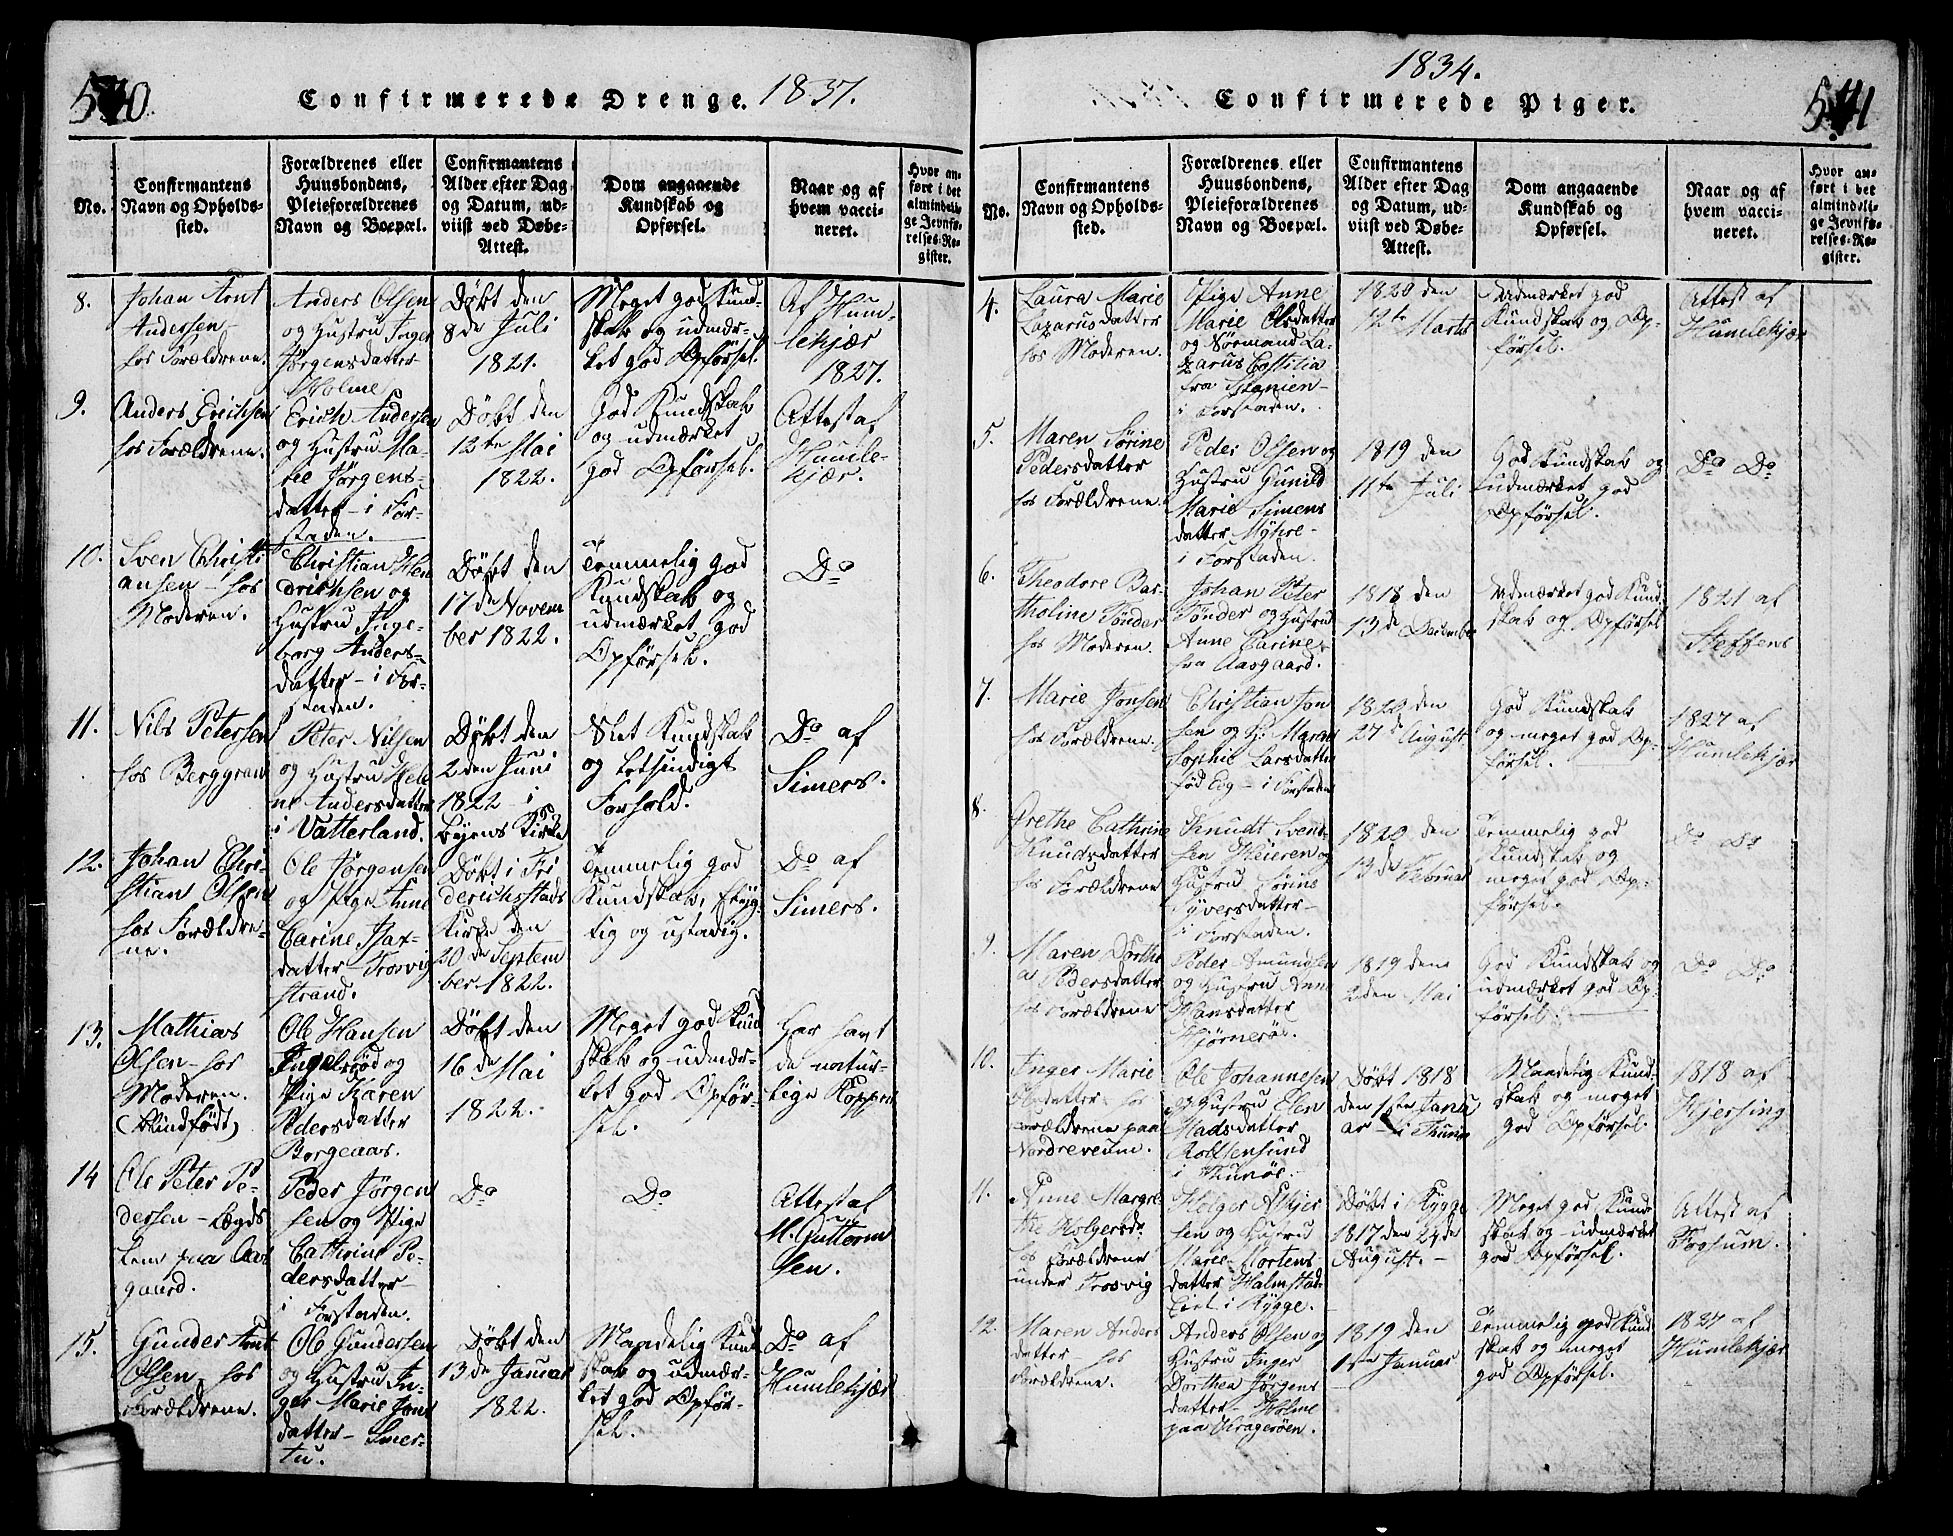 540
Confirmerede Drenge. 1837.
No.
Confirmantens
Navn og Opholds-
sted.
Forældrenes eller
Huusbondens,
Pleieforældrenes
Navn og Boepæl.
Confirmantens
Alder efter Dag
og Datum, ud-
viist ved Døbe-
Attest.
Dom angaaende
Kundskab og
Opførsel.
Naar og af
hvem vacci-
neret.
Hvor an-
ført i det
almindeli-
ge Jevnfø-
relses-Re-
gister.
8.
Johan Arnt
Andersen
hos Forældrene.
Anders Olsen
og Hustru Inger
Jørgensdatter
Holme
Døbt den
8de Juli
1821.
Meget god Kund-
skab og udmær-
ket god Opførsel.
Af Hum-
lekjær
1827.
9.
Anders Erichsen
hos Forældrene.
Erich Andersen
og Hustru Ma-
rie Jørgens-
datter - i For-
staden.
Døbt den
12te Mai
1822.
God Kundskab
og udmærket
god Opførsel.
Attest af
Humle-
kjær.
10.
Sven Christi
ansen - hos
Moderen.
Christian Hen
drichsen og
Hustru Inge-
borg Anders-
datter - i For-
staden.
Døbt den
17de Novem
ber 1822.
Temmelig god
Kundskab og
udmærket god
Opførsel.
Do
11.
Nils Petersen
hos Berggran
Peter Nilsen
og Hustru Hele
ne Andersdatter
i Vatterland.
Døbt den
2den Juni
1822 - i
Byens Kirke
Slet Kundskab
og letsindigt
Forhold.
Do af
Simers.
12.
Johan Chri-
stian Olsen
hos Forældre-
ne.
Ole Jørgensen
og Pige Anne
Carine Isax-
datter Trosvig
strand.
Døbt i Fri
derichsstads
Kirke den
30de Septem
ber 1822.
Temmelig god
Kundskab, flyg-
tig og ustadig.
Do af
Simers.
13.
Mathias
Olsen - hos
Moderen.
(blindfødt)
Ole Hansen
Ingelsrød og
Pige Karen
Pedersdatter
Borgeaas.
Døbt den
16de Mai
1822.
Meget god Kund
skab og udmær-
ket god Opfør-
sel.
Har havt
de natur-
lige Kopper
14
Ole Peter Pe-
dersen - Lægds
lem paa Aas
gaard.
Peder Jørgen
sen og Pige
Cathrine Pe-
dersdatter
i Forstaden.
Do
Do
Attest af
M. Guttorm
sen.
15.
Gunder Arnt
Olsen - hos
Forældrene.
Ole Gundersen
og Hustru In-
ger Marie Jons
datter - Smer-
tu.
Døbt den
13de Januar
1822.
Maadelig Kund
skab og udmær-
ket god Opfør-
sel.
Do af
Humlekjær
1834.
Confirmerede Piger.
541
No.
Confirmantens
Navn og Opholds-
sted.
Forældrenes eller
Huusbondens,
Pleieforældrenes
Navn og Boepæl.
Confirmantens
Alder efter Dag
og Datum, ud-
viist ved Døbe-
Attest.
Dom angaaende
Kundskab og
Opførsel.
Naar og af
hvem vacci-
neret.
Hvor an-
ført i det
almindeli-
ge Jevnfø-
relses-Re-
gister.
4.
Laura Marie
Lazarusdatter
hos Moderen.
Pige Anne
Marie Olsdatter
og Sømand La-
zarus
fra Spanien -
i Forstaden.
1820 den
12te Marts
Udmærket god
Kundskab og Op-
førsel.
Attest af
Humlekjær
5.
Maren Sørine
Pedersdatter
hos Forældrene.
Peder Olsen og
Hustru Gunild
Marie Simens
datter Myhre -
i Forstaden.
1819 den
11te Juli
God Kundskab og
udmærket god
Opførsel.
Do Do
6.
Theodore Bar-
tholine Tønder
hos Moderen.
Johan Peter
Tønder og Hustru
Anne Carine
fra Aasgaard.
1818 den
13de December
Udmærket god Kund-
skab og Opførsel
1821 af
Steffens
7.
Marie Jonsen
hos Forældrene.
Christian Jon
sen og H. Maren
Sophie Larsdatter
fød Eeg - i Forstaden
1820 den
27de August
God Kundskab
og meget god Op-
førsel.
1827 af
Humlekjær
8.
Grethe Cathrine
Knudsdatter
hos Forældrene
Knudt Svend-
sen Heuren og
Hustru Sørine
Syversdatter -
i Forstaden.
1820 den
13de Februar
Temmelig god
Kundskab og
meget god Op-
førsel.
Do Do
9.
Maren Dorthe
a Pedersdatter
hos Forældrene
Peder Amundsen
og Hustru Anne
Hansdatter
Hjørnerød.
1819 den
2den Mai
God Kundskab og
udmærket god Op-
førsel.
Do Do
10.
Inger Marie
Olsdatter hos
Forældrene paa
Nordreveum.
Ole Johannesen
og Hustru Elen
Madsdatter
Rolfsensund
i Thunøe.
Døbt 1818
den 1ste Janu
ar - i Thunøe
Maadelig Kund-
skab og meget
god Opførsel.
1818 af
Kjersing
11.
Anne Margre
the Holgersdr
hos Forældrene
under Trosvig
Holger Asbjør
sen og Hustru
Marie Mortens
datter Halmstad
Eiet i Rygge.
Døbt i Rygge
1817 den 24de
August. -
Meget god Kund
skab og udmærket
god Opførsel.
Attest af
Fossum.
12.
Maren Anders
datter hos
Forældrene.
Anders Olsen og
Hustru Inger
Dorthea Jørgens
datter - Holme
paa Kragerøen.
1819 den
1ste Januar
Temmelig god Kund
skab og meget
god Opførsel.
1827 af
Humlekjær